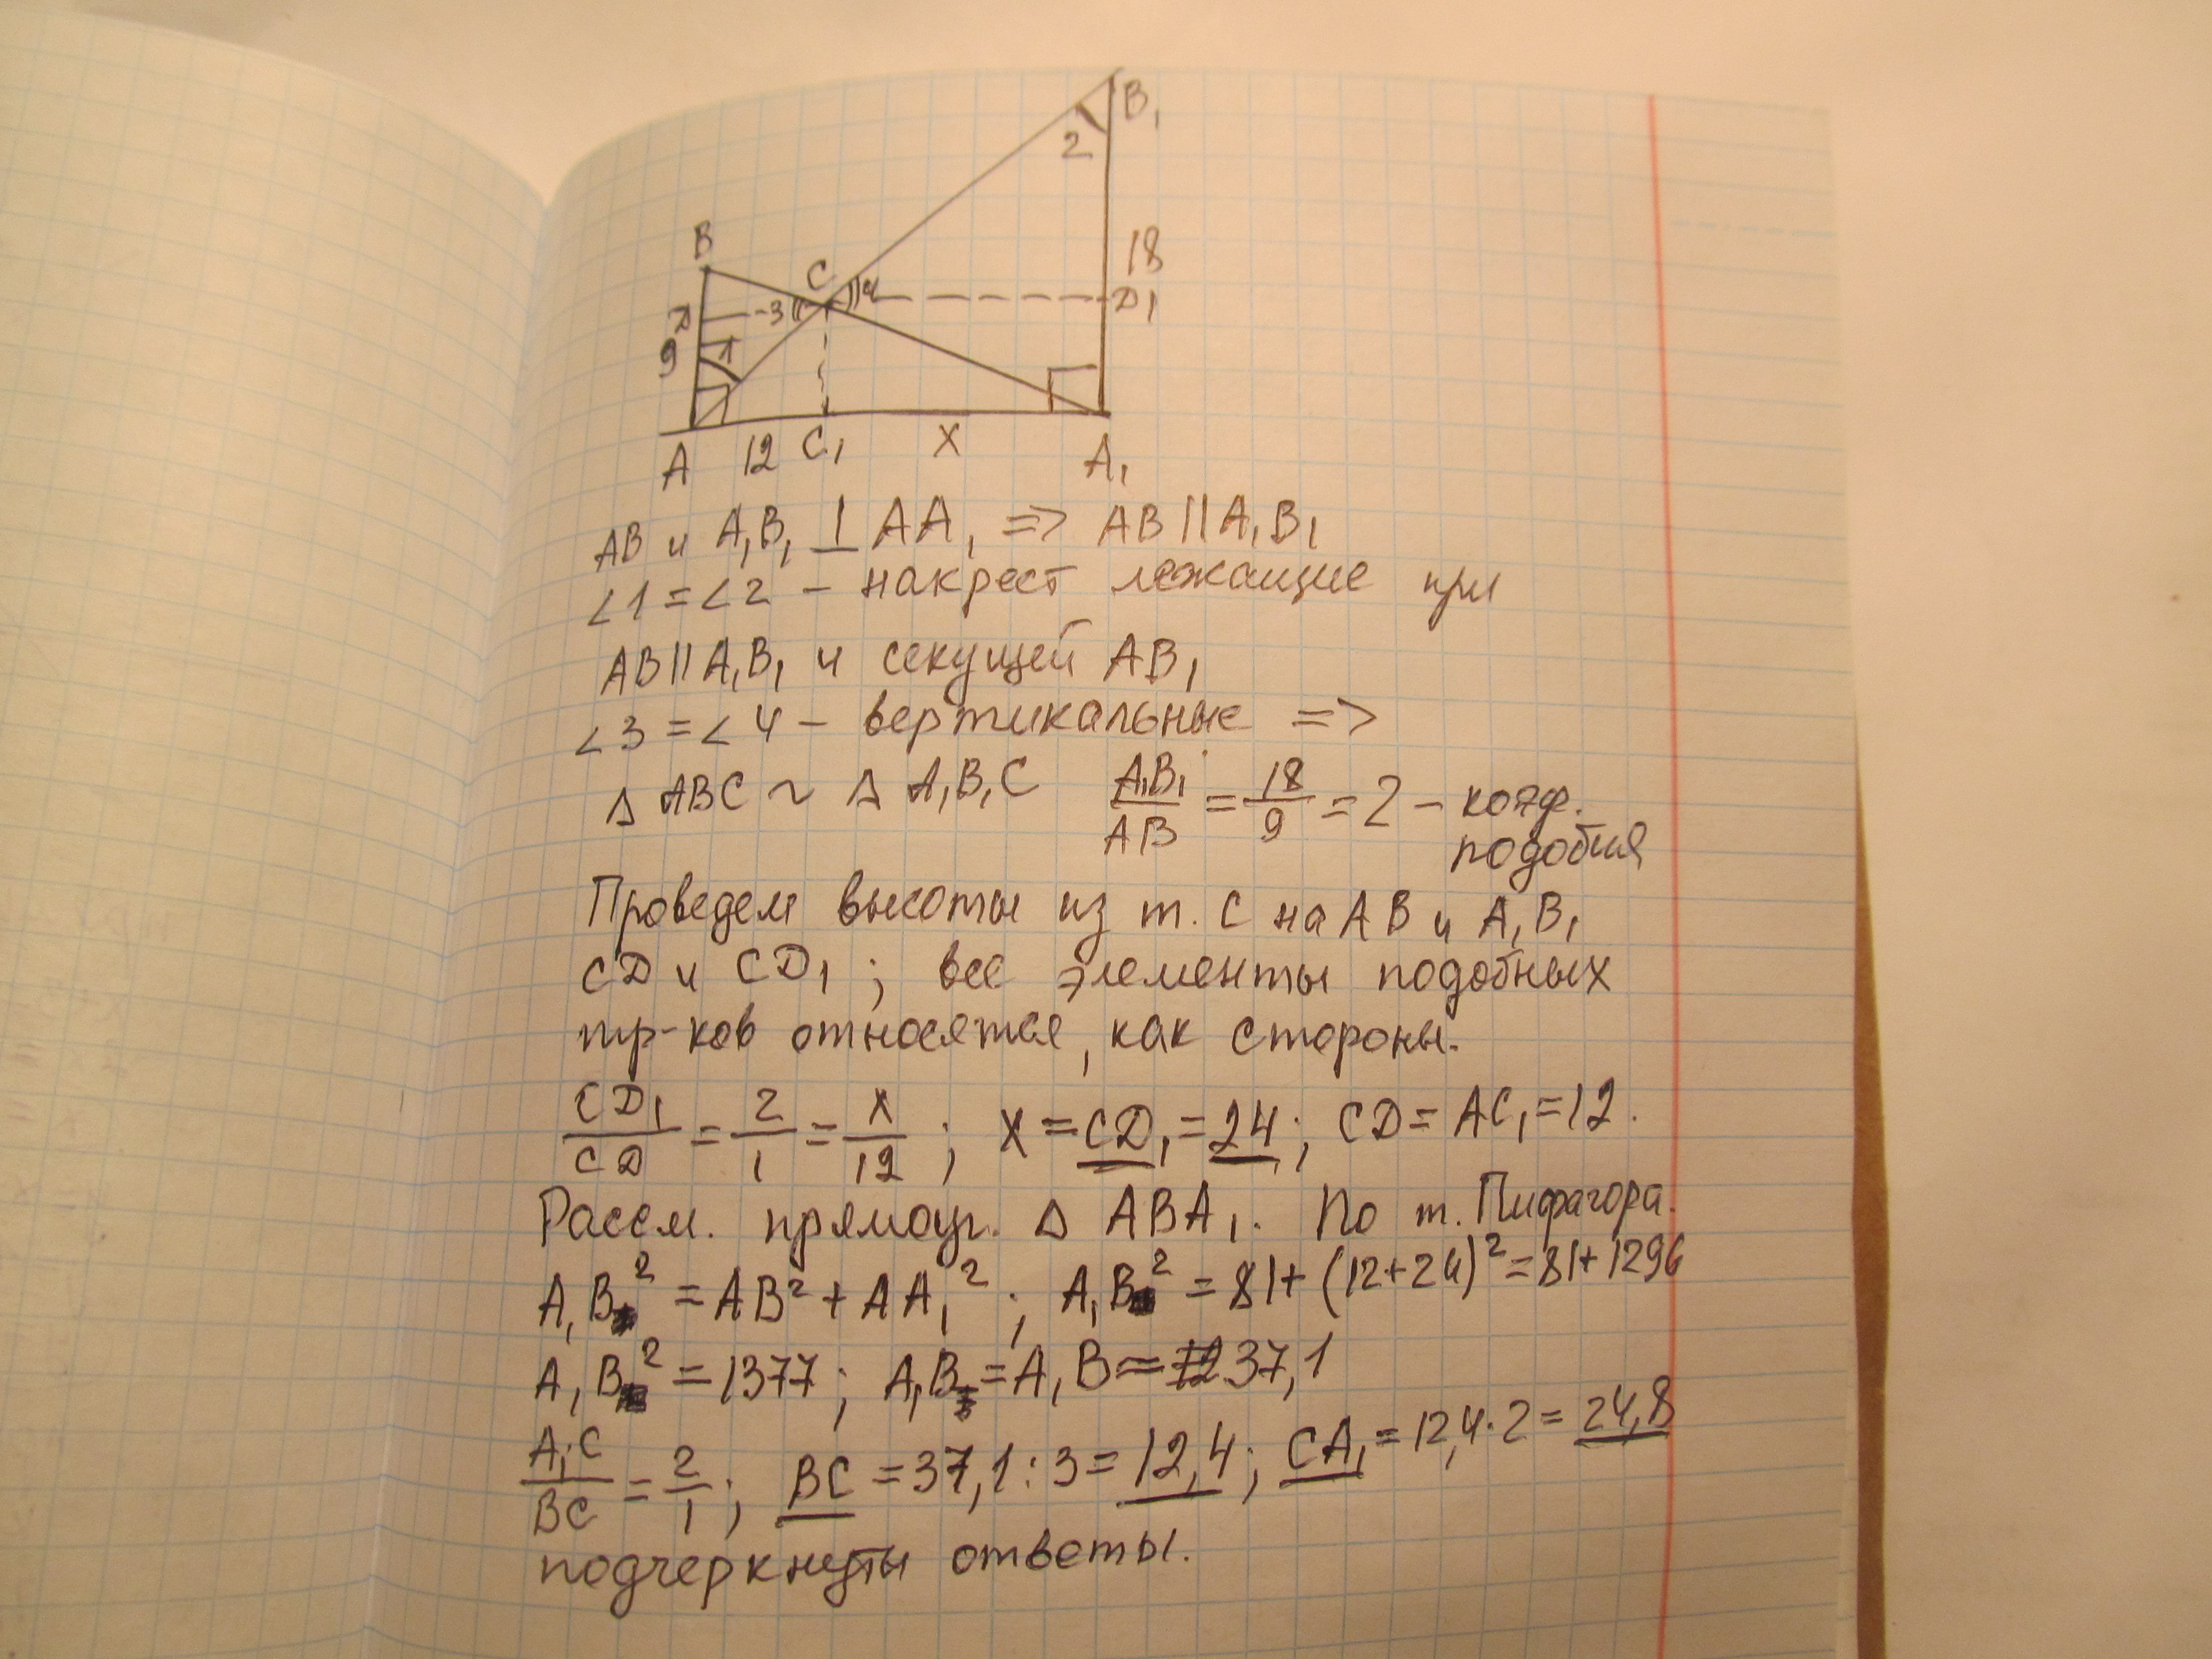 B₁
2
B
18
C
D
3
4
D₁
9
1
A 12 C₁ X A₁
AB и A₁B₁ ⊥ AA₁ => AB || A₁B₁
∠1 = ∠2 – накрест лежащие при
AB || A₁B₁ и секущей AB₁
∠3 = ∠4 – вертикальные =>
Δ ABC ~ Δ A₁B₁C A₁B₁/AB = 18/9 = 2 – коэф.
подобия
Проведем высоты из т. C на AB и A₁B₁
CD и CD₁; все элементы подобных
тр-ков относятся, как стороны.
CD₁/CD = 2/1 = X/12; X = CD₁ = 24; CD = AC₁ = 12.
Рассм. прямоуг. Δ ABA₁. По т. Пифагора.
A₁B² = AB² + AA₁²; A₁B² = 81 + (12+24)² = 81 + 1296
A₁B² = 1377; A₁B = A₁B ≈ 37,1
A₁C/BC = 2/1; BC = 37,1 : 3 = 12,4; CA₁ = 12,4 · 2 = 24,8
подчеркнуты ответы.